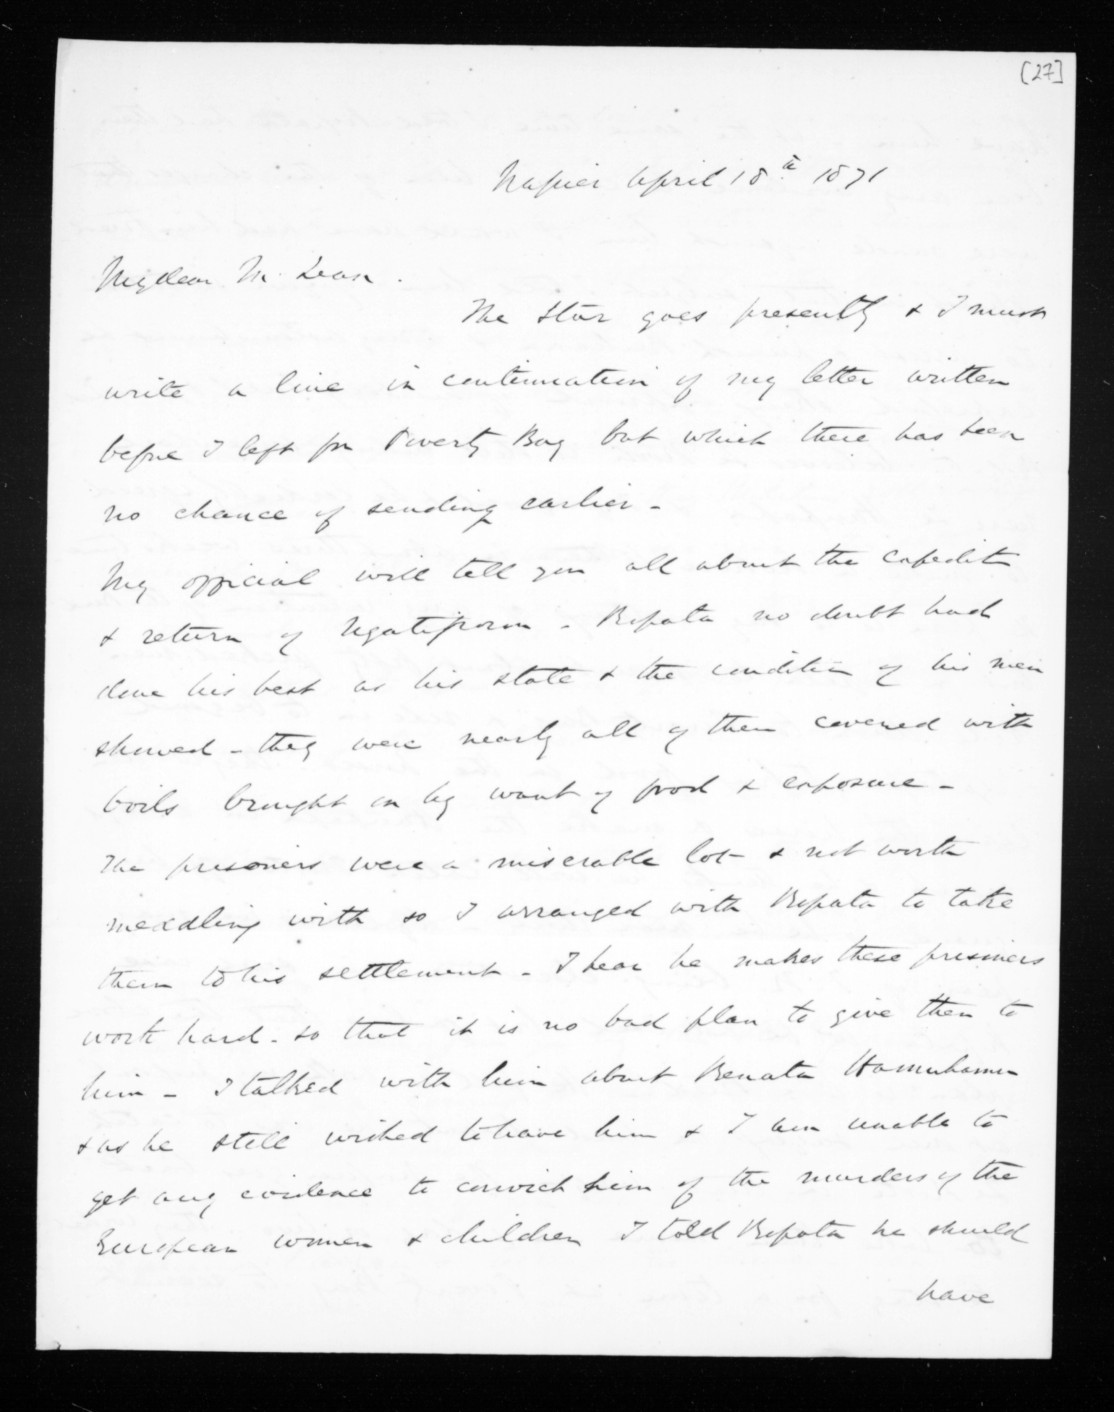 [27]
Napier April 18th 1871
My dear McLean.
The Star goes presently & I must
write a line in continuation of my letter written
before I left for Poverty Bay but which there has been
no chance of sending earlier -
My official will tell you all about the expedition
& return of Ngatiporou - Ropata no doubt had
done his best as his state & the condition of his men
showed - they were nearly all of them covered with
boils brought on by want of food & exposure -
The prisoners were a miserable lot & not worth
meddling with so I arranged with Ropata to take
them to his settlement - I hear he makes these prisoners
work hard - so that it is no bad plan to give them to
him - I talked with him about Renata
& as he still wished to have him & I am unable to
get any evidence to convict him of the murders of the
European women & children I told Ropata he should
have